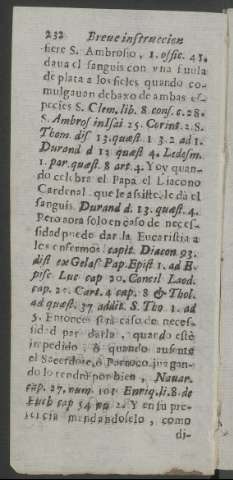 232 Breue instruccion
fiere S. Ambrosio, 1. offic. 41.
daua el sanguis con vna
de plata a los fieles quando co-
mulgauan debaxo de ambas es-
pecies S. Clem. lib. 8. cons. c. 28.
S. Ambros in Isai 25. Corint. 2. S.
Thom. dis 13. quæst 1 3. 2 ad 1.
Durand d 12 quæst 4. Ledesm.
1. par. quæst. 8 art. 4. Y oy quan-
do celebra el Papa el Diacono
Cardenal que le assiste le dà el
sanguis. Durand d. 13. quæst. 4.
Pero aora solo en caso de neces-
sidad puede dar la Eucaristia a
los enfermos capit. Diacon 93.
dist ex Gelas Pap. Epist 1. ad E-
pisc Luc cap 20. Concil Laod.
cap. 25. Cart. 4 cap. 8 & Thol.
ad quæst. 37 addit. S. Tho 1. ad
5. Entonces serà caso de neces-
sidad par darla, quando estè
impedido, ò quando ausente
el Sacerdote, ò Parroco juzgan-
do lo tendrà por bien, Nauar.
cap. 27. num. 101 Enriq. li. 8. de
Euch cap 54 nu 2. Y en su pre-
sencia mandandoselo, como
di-